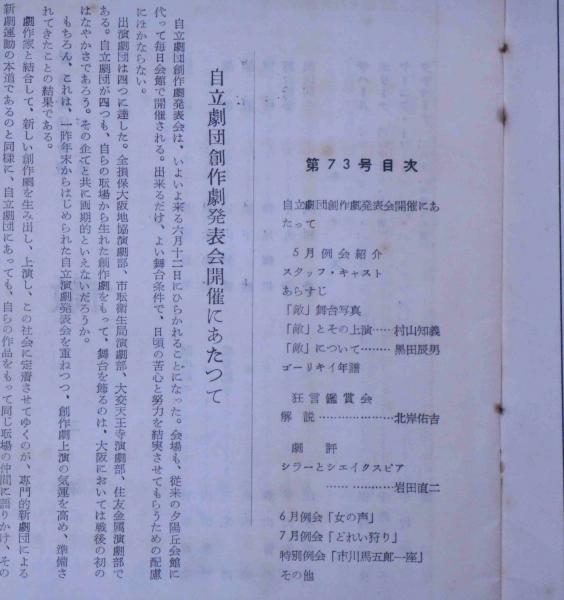 第73号目次
自立劇団創作劇発表会開催にあ
たって
5月例会紹介
スタッフ・キャスト
あらすじ
「敵」舞台写真
「敵」とその上演……村山知義
「敵」について………黒田辰男
ゴーリキイ年譜
狂言鑑賞会
解説…………………北岸佑吉
劇評
シラーとシェイクスピア
…………岩田直二
6月例会「女の声」
7月例会「どれい狩り」
特別例会「市川馬五郎一座」
その他
自立劇団創作劇発表会開催にあたつて
自立劇団創作劇発表会は、いよいよ来る六月十二日にひらかれることになった。会場も、従来の夕陽丘会館に
代って毎日会館で開催される。出来るだけ、よい舞台条件で、日頃の苦心と努力を結実させてもらうための配慮
にほかならない。
出演劇団は四つに達した。全損保大阪地協演劇部、市職衛生局演劇部、大交天王寺演劇部、住友金属演劇部で
ある。自立劇団が四つも、自らの職場から生れた創作劇をもって、舞台を飾るのは、大阪においては戦後の初の
はなやかさであろう。その企てと共に画期的といえないだろうか。
もちろん、これは、一昨年末からはじめられた自立演劇発表会を重ねつつ、創作劇上演の気運を高め、準備さ
れてきたことの結果である。
劇作家と結合して、新しい創作劇を生み出し、上演し、この社会に定着させてゆくのが、専門的新劇団による
新劇運動の本道であるのと同様に、自立劇団にあっても、自らの作品をもって同じ職場の仲間に語りかけ、その